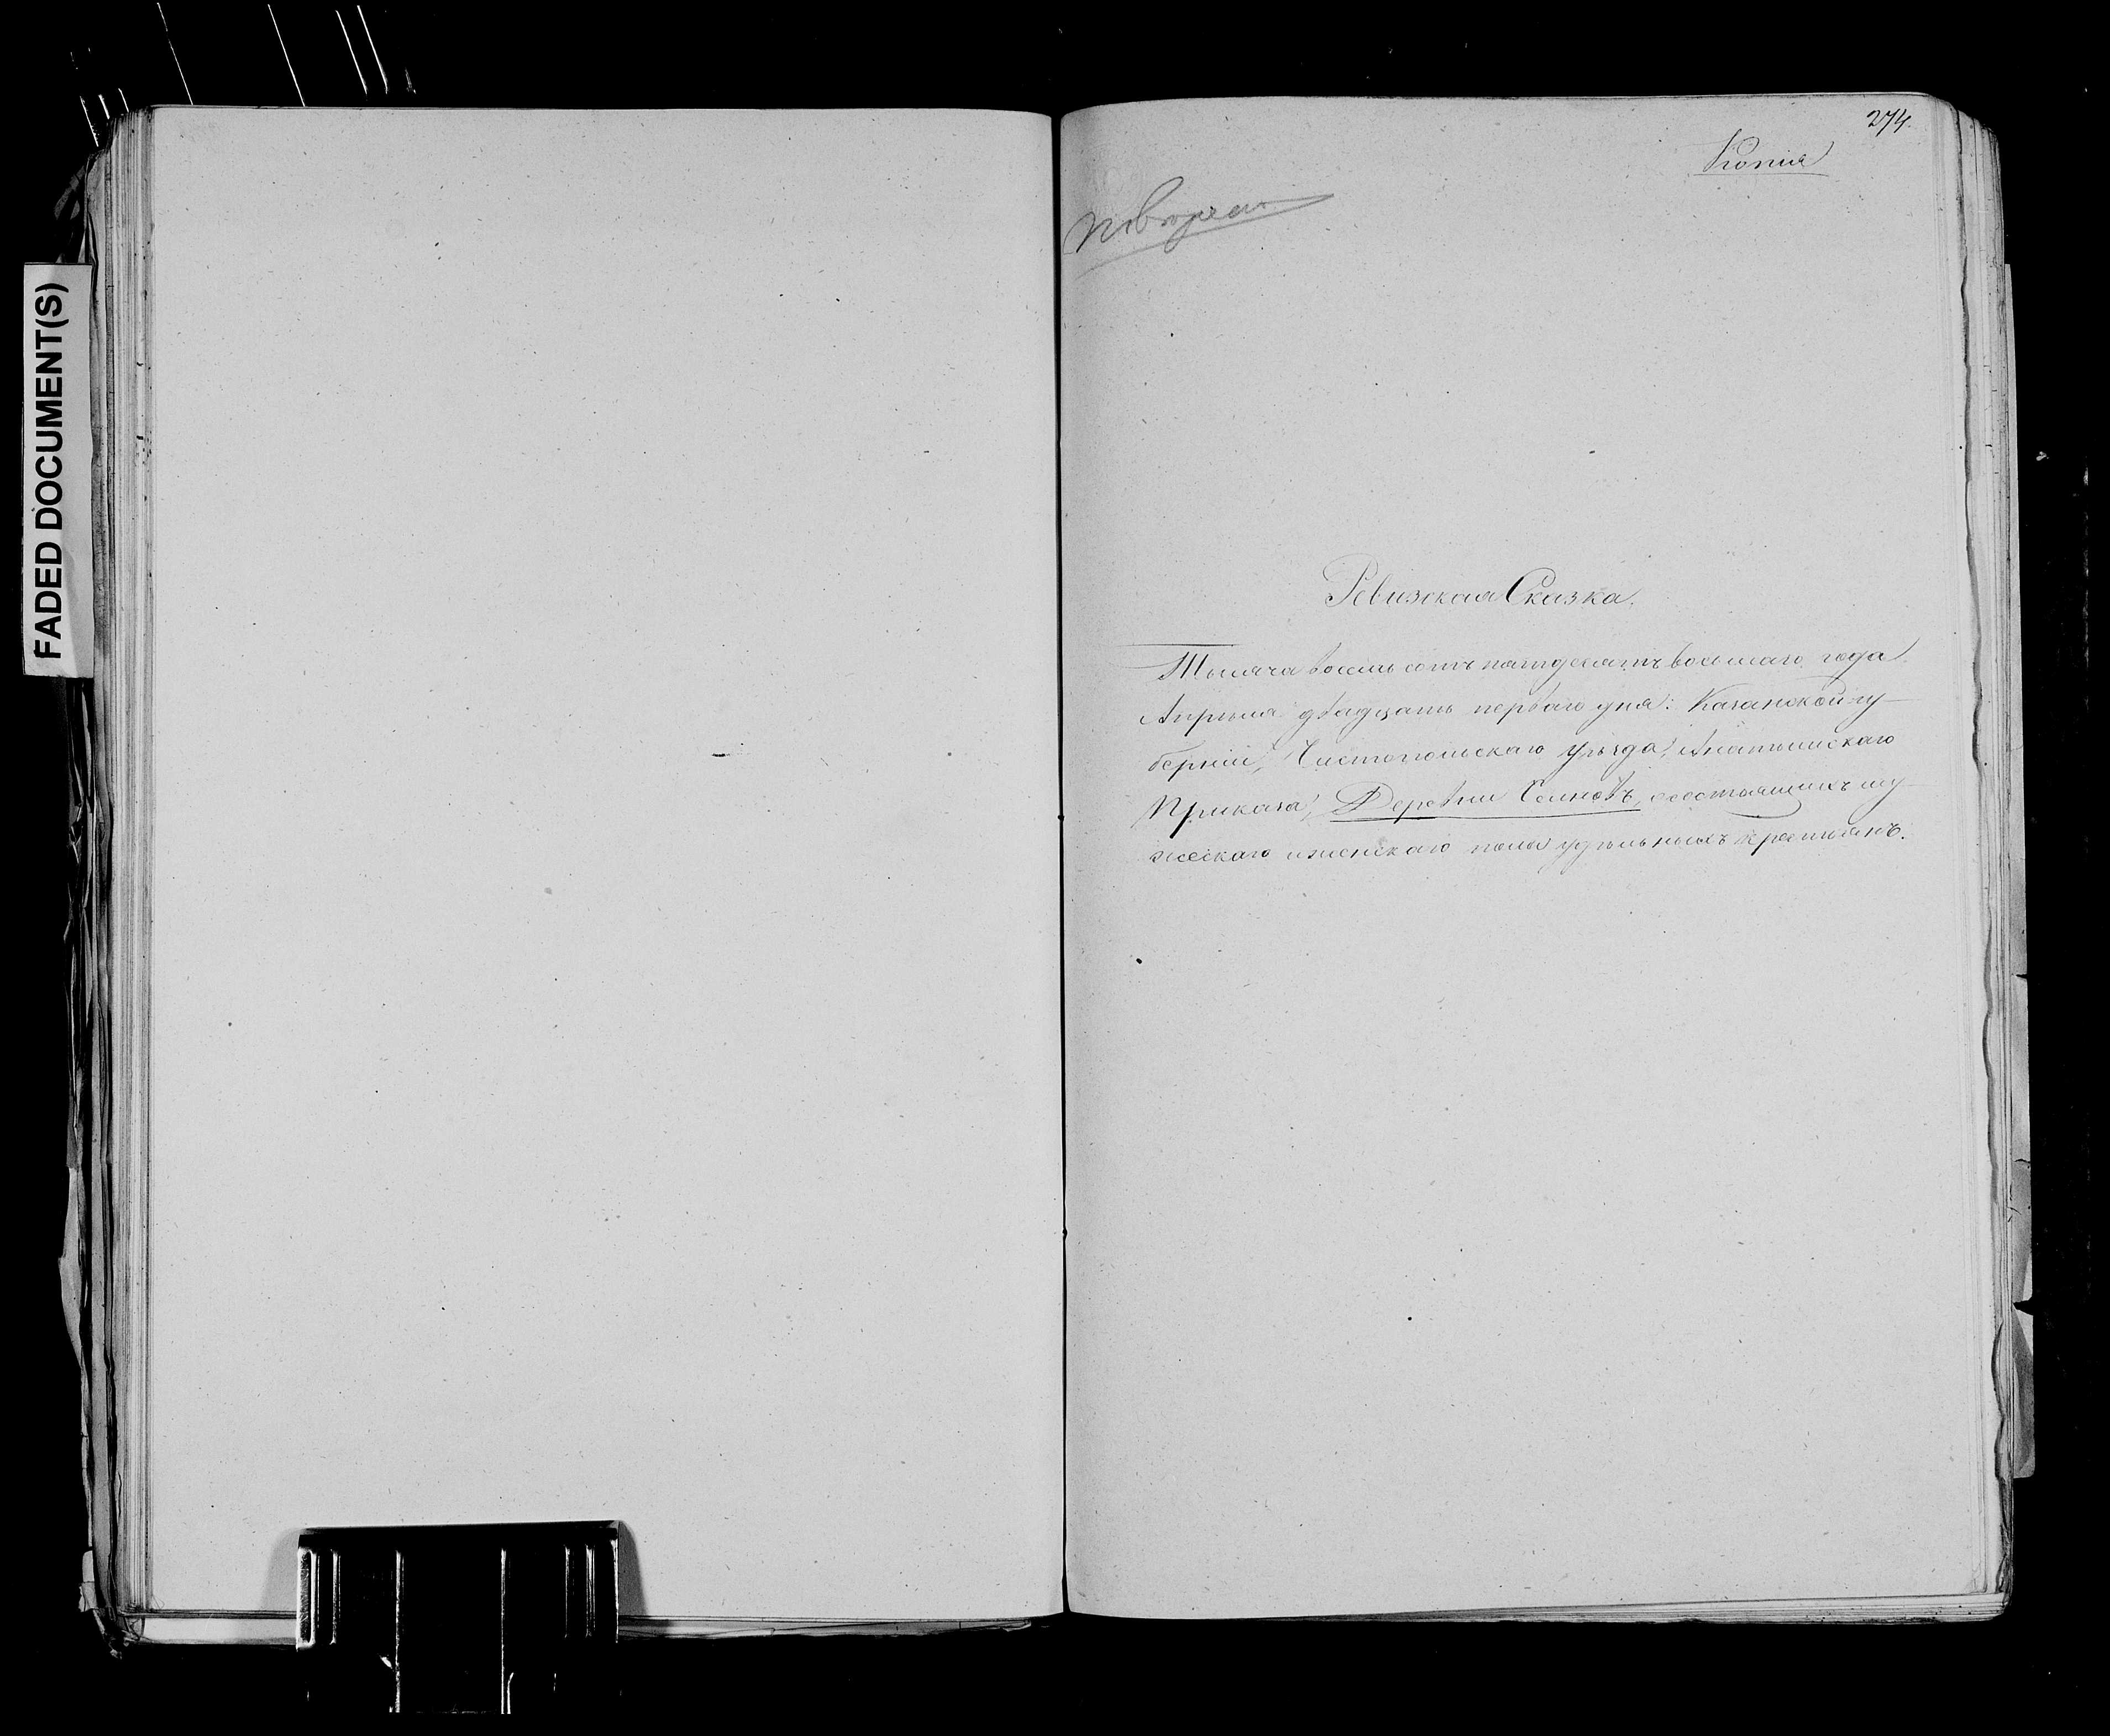 FADED DOCUMENT(S)
274.
Копія
Ревизская Сказка.
Тысяча восемьсотъ пятдесятъ восьмаго года
Апрѣля двадцать перваго дня: Казанской гу-
берніи, Чистопольскаго уѣзда,
Приказа, Деревни о состоящихъ му-
жескаго и женскаго пола удѣльныхъ крестьянъ.